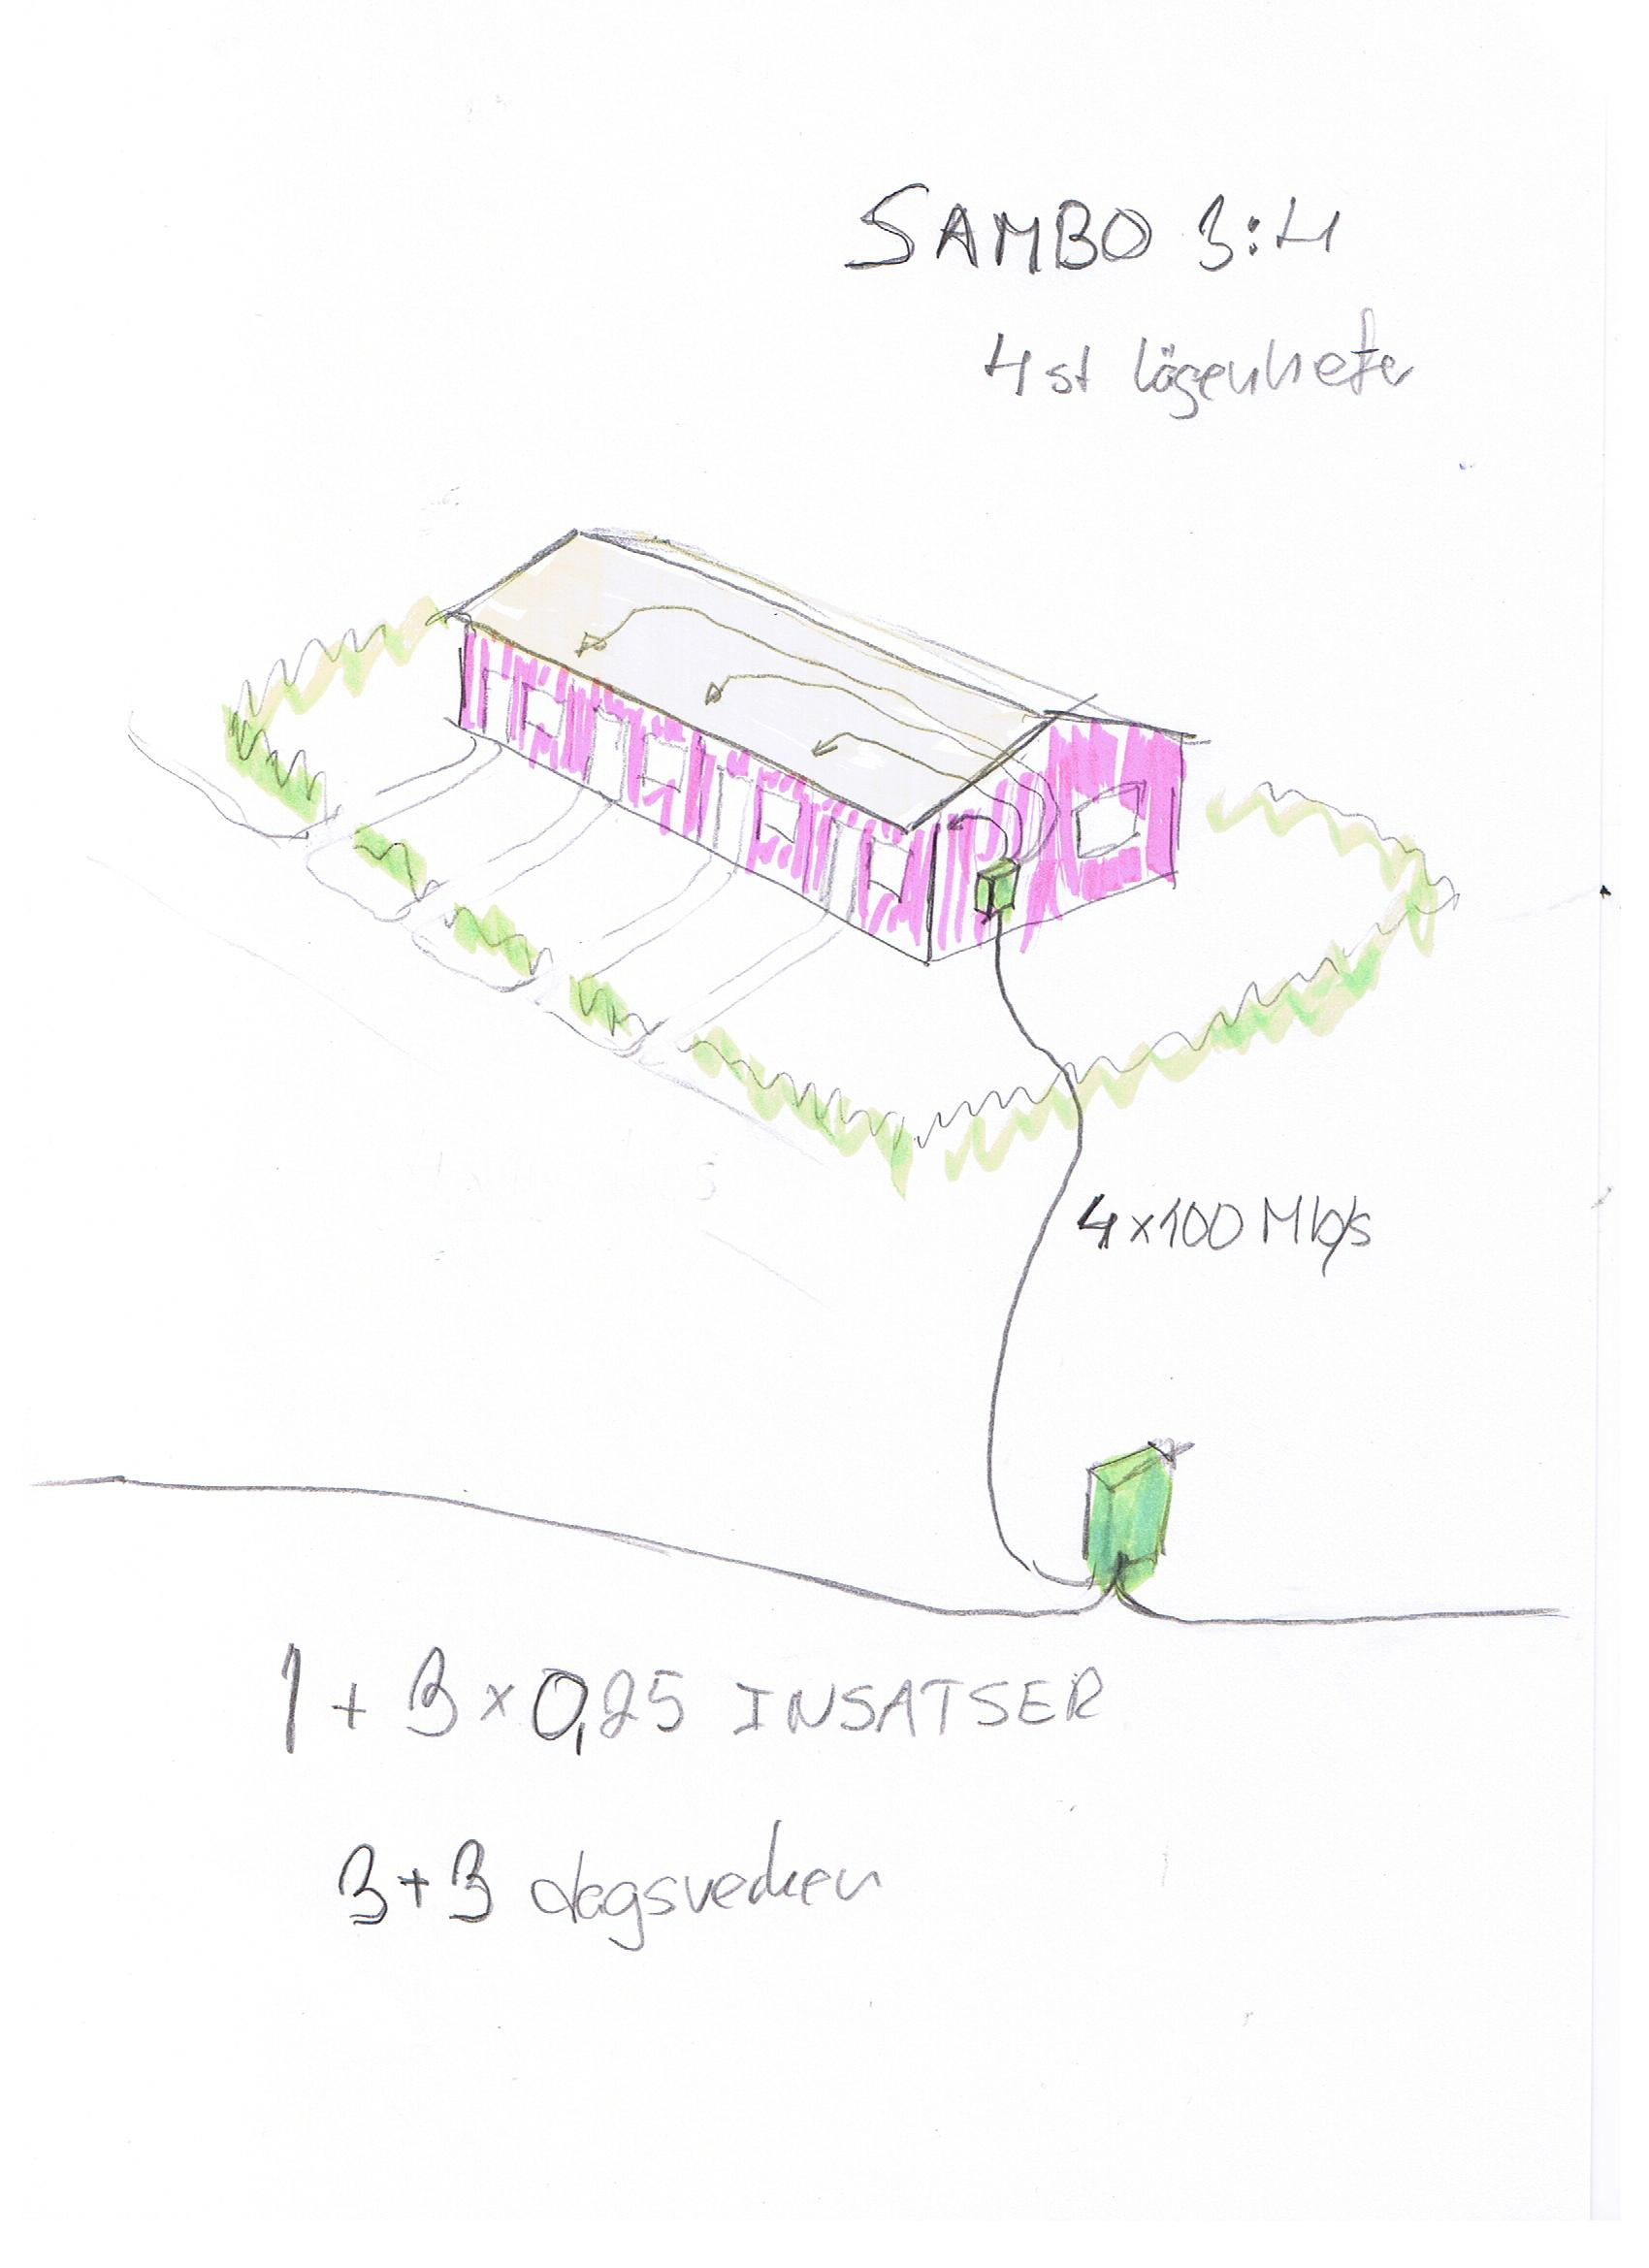 SAMBO 3:4
4 st lägenheter
4x100 Mb/s
1 + 3 x 0,25 INSATSER
3+3 dagsverken